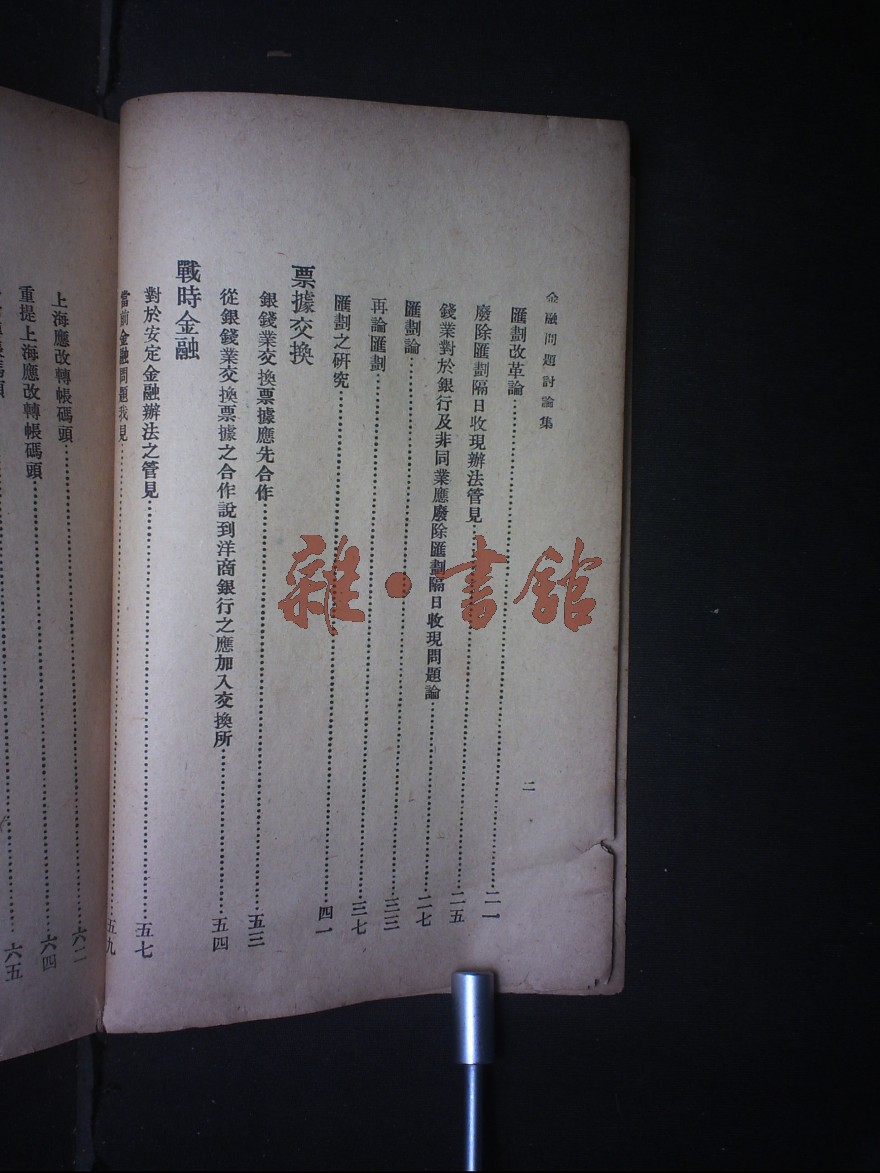 金融問題討論集
二
匯劃改革論……二一
廢除匯劃隔日收現辦法管見……二五
錢業對於銀行及非同業應廢除匯劃隔日收現問題論……二七
匯劃論……三三
再論匯劃……三七
匯劃之研究……四一
票據交換
銀錢業交換票據應先合作……五三
從銀錢業交換票據之合作說到洋商銀行之應加入交換所……五四
戰時金融
對於安定金融辦法之管見……五七
當前金融問題我見……五九
上海應改轉帳碼頭……六二
重提上海應改轉帳碼頭……六四
帳碼頭……六五
雜·書館